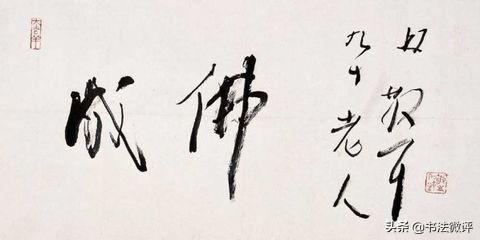 成佛
林散耳
九十老人
头条 @书法微评